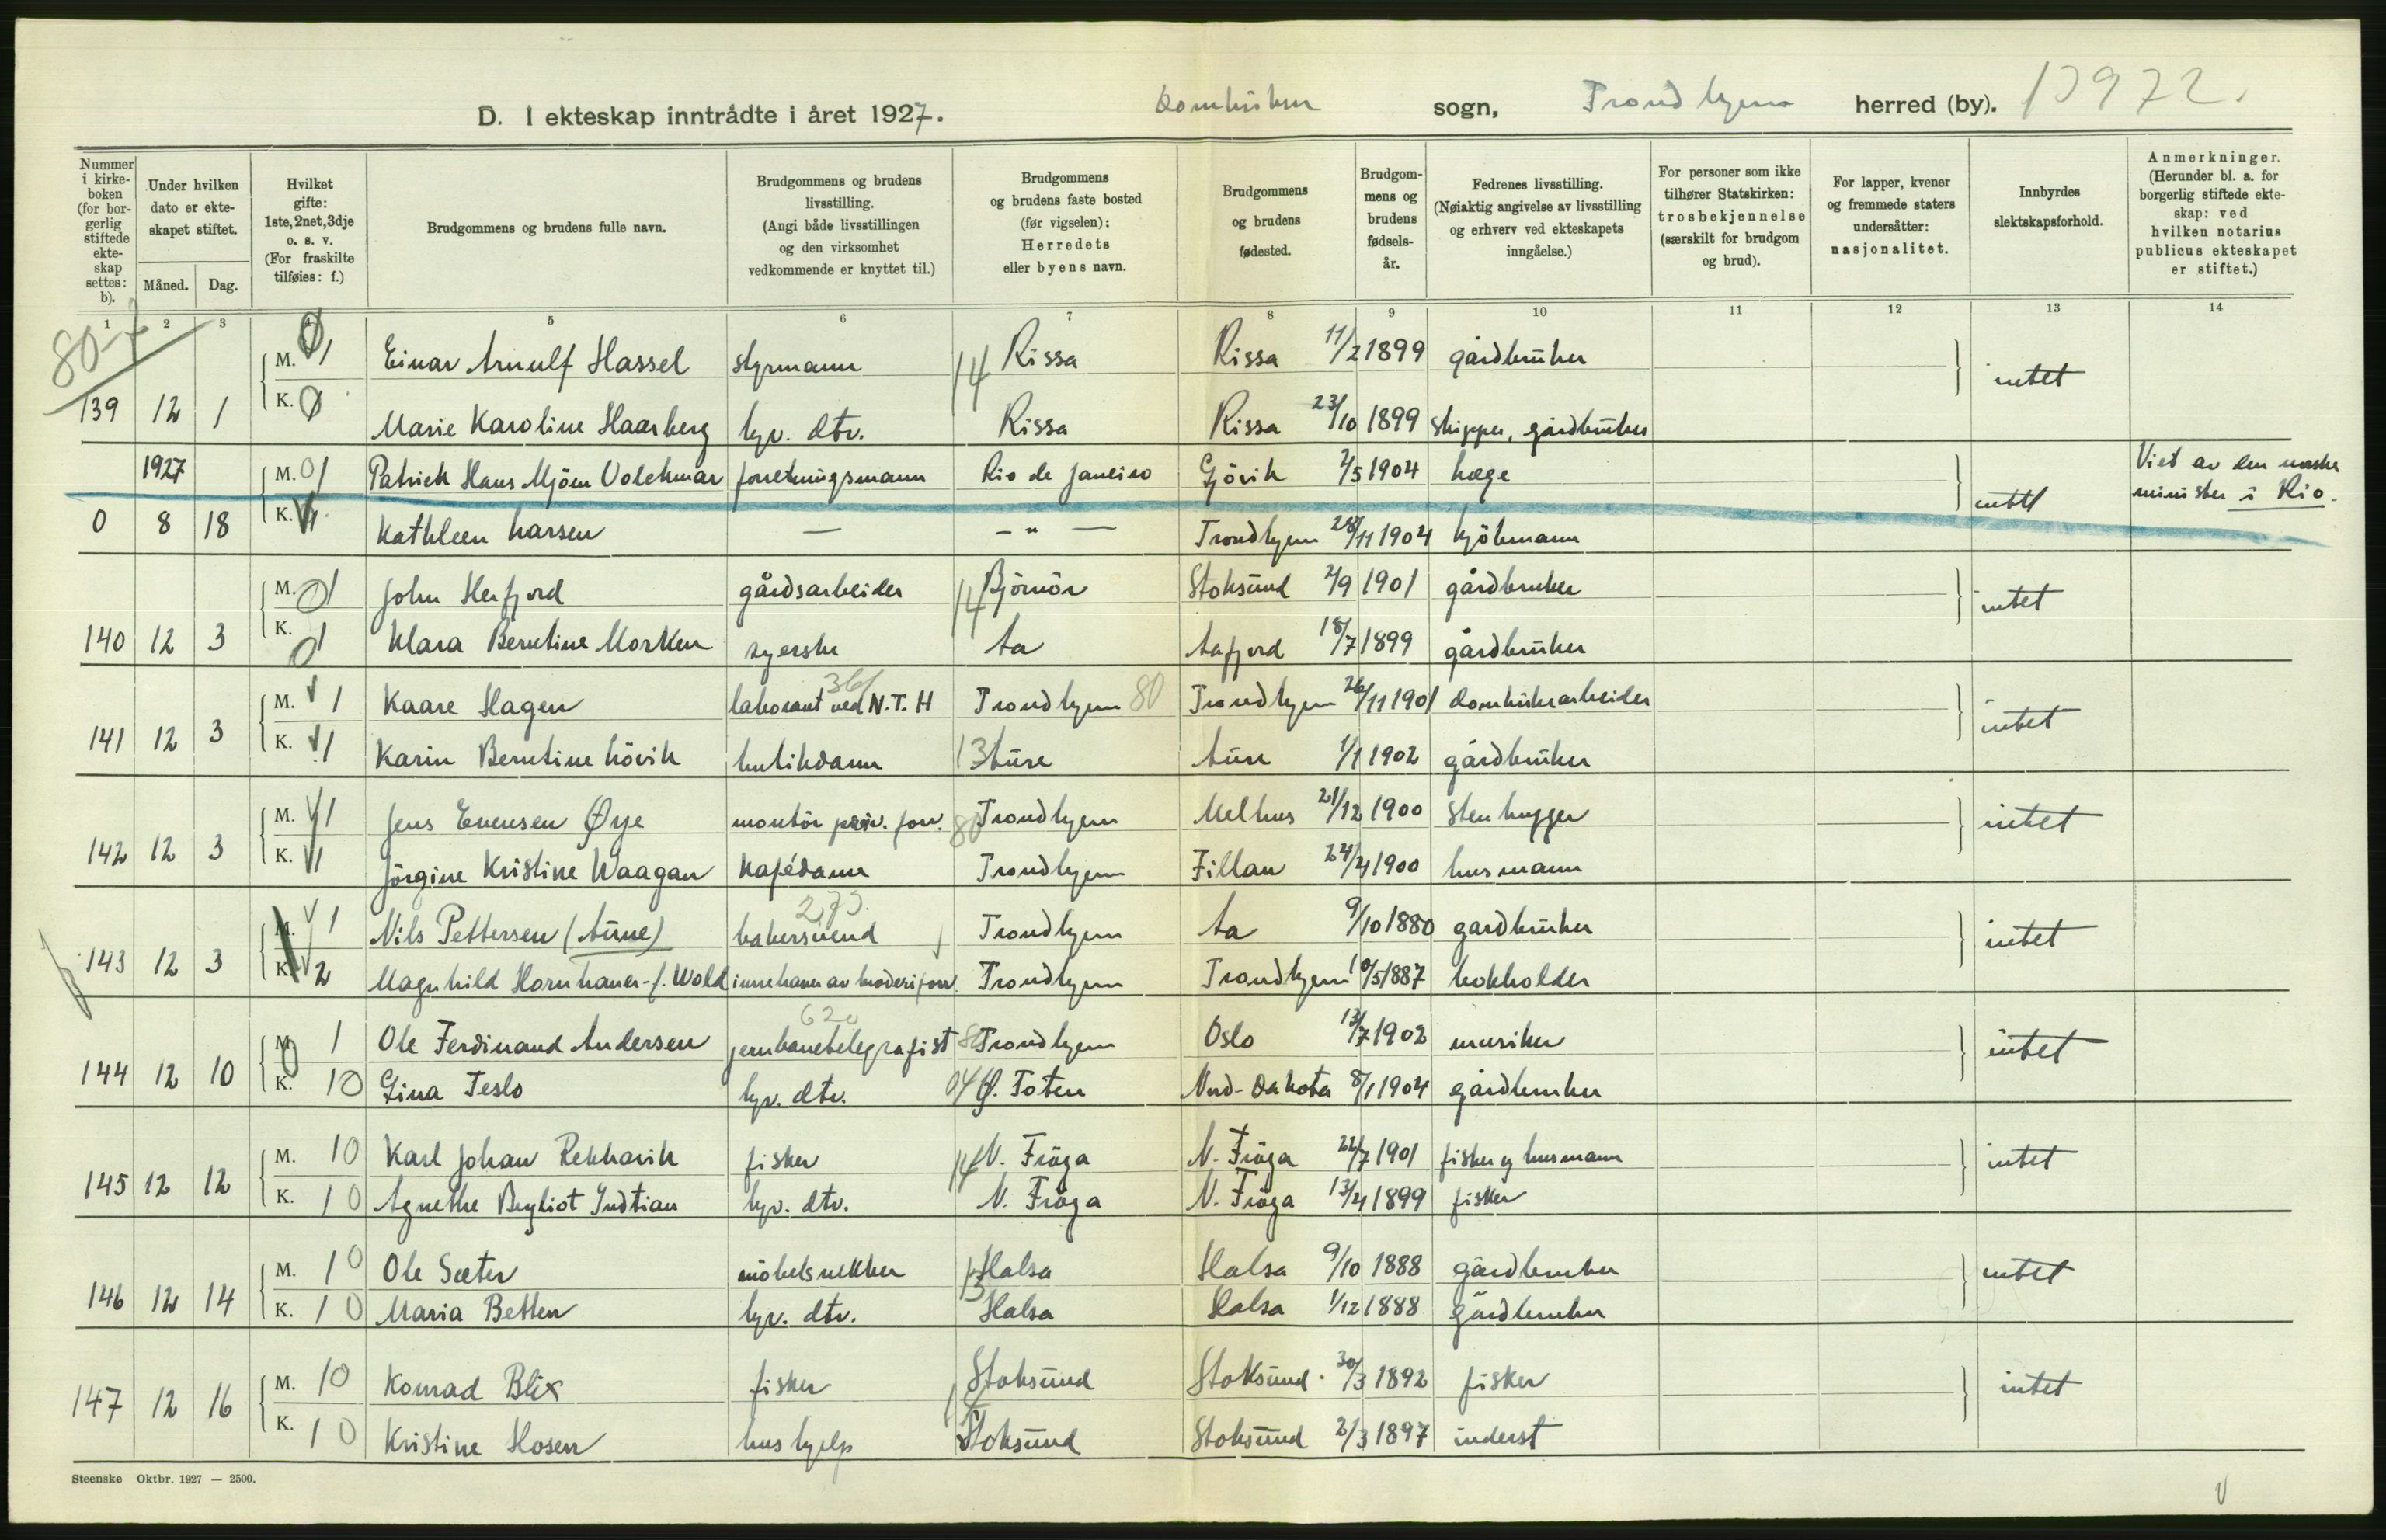 D. I ekteskap inntrådte i året 1927. Domkirken sogn, Trondhjem herred (by). 13972.
Nummer i kirkeboken (for borgerlig stiftede ekteskap settes: b).
Under hvilken dato er ekteskapet stiftet. Måned. Dag.
Hvilket gifte: 1ste, 2net, 3dje o. s. v. (For fraskilte tilføies: f.)
Brudgommens og brudens fulle navn.
Brudgommens og brudens livsstilling. (Angi både livsstillingen og den virksomhet vedkommende er knyttet til.)
Brudgommens og brudens faste bosted (før vigselen): Herredets eller byens navn.
Brudgommens og brudens fødested.
Brudgommens og brudens fødselsår.
Fedrenes livsstilling. (Nøiaktig angivelse av livsstilling og erhverv ved ekteskapets inngåelse.)
For personer som ikke tilhører Statskirken: trosbekjennelse (særskilt for brudgom og brud).
For lapper, kvener og fremmede staters undersåtter: nasjonalitet.
Innbyrdes slektskapsforhold.
Anmerkninger. (Herunder bl. a. for borgerlig stiftede ekteskap: ved hvilken notarius publicus ekteskapet er stiftet.)
1 2 3 4 5 6 7 8 9 10 11 12 13 14
80-7
M. 0 1 Einar Arnulf Hassel styrmann 14 Rissa Rissa 11/2 1899 gårdbruker intet
139 12 1 K. 0 Marie Karoline Haarberg hjv. dtr. Rissa Rissa 23/10 1899 skipper, gårdbruker
1927 M. 0 1 Patrick Hans Mjöen Volckmar forretningsmann Rio de Janeiro Gjövik 2/5 1904 læge intet Viet av den norske
minister i Rio.
0 8 18 K. 1 Kathleen Larsen — -"- Trondhjem 28/11 1904 kjöbmann
M. 0 1 John Herfjord gårdsarbeider 14 Björnör Stoksund 2/9 1901 gårdbruker intet
140 12 3 K. 0 1 Klara Berntine Morken syerske Aa Aafjord 18/7 1899 gårdbruker
M. 1 Kaare Hagen laborant ved N.T.H 36/ Trondhjem 80 Trondhjem 26/11 1901 domkirkearbeider intet
141 12 3 K. 1 Karin Berntine Lövik butikdame 13 Aure Aure 1/1 1902 gårdbruker
M. 1 Jens Evensen Øye montör priv. forr. 80 Trondhjem Melhus 21/12 1900 stenhugger intet
142 12 3 K. 1 Jörgine Kristine Waagan kafédame Trondhjem Fillan 24/4 1900 husmann
M. 1 Nils Pettersen (Aune) bakersvend 273. Trondhjem Aa 9/10 1880 gardbruker intet
143 12 3 K. 2 Magnhild Hornhaver f. Wold innehaver av broderiforr. Trondhjem Trondhjem 10/5 1887 bokholder
M. 1 Ole Ferdinand Andersen jernbanetelegrafist 620 80 Trondhjem Oslo 13/7 1902 musiker intet
144 12 10 K. 10 Gina Teslo hjv. dtr. 04 Ø. Toten Nord-Dakota 8/1 1904 gårdbruker
M. 10 Karl Johan Rekkavik fisker 14 N. Fröya N. Fröya 22/7 1901 fisker og husmann intet
145 12 12 K. 10 Agnethe Bergliot Indtian hjv. dtr. N. Fröya N. Fröya 13/4 1899 fisker
M. 10 Ole Sæter möbelsnekker 13 Halsa Halsa 9/10 1888 gårdbruker intet
146 12 14 K. 10 Maria Betten hjv. dtr. Halsa Halsa 1/12 1888 gårdbruker
M. 10 Konrad Blix fisker 14 Stoksund Stoksund 30/3 1892 fisker intet
147 12 16 K. 10 Kristine Hosen hushjelp Stoksund Stoksund 2/3 1897 inderst
Steenske Oktbr. 1927 — 2500.